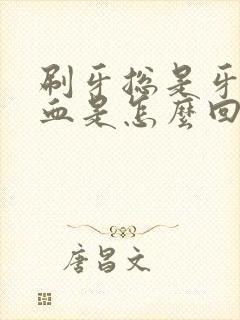 刷牙总是牙
血是怎麼回
唐昌文